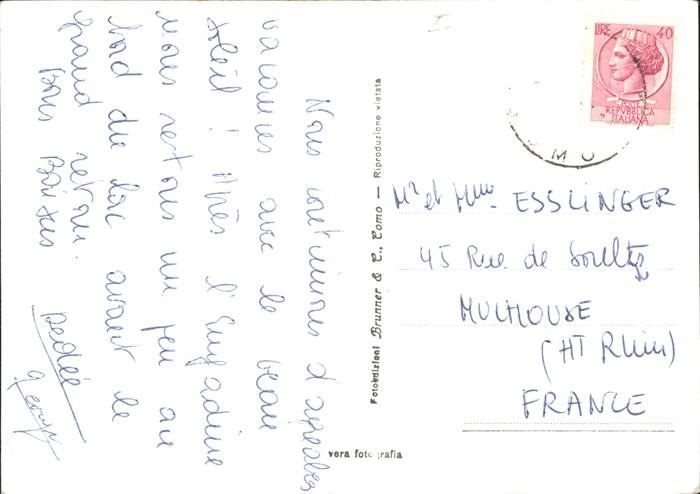 Nous continuons d'agréables
vacances avec le beau
soleil ! Après l'Engadine
nous restons un peu au
bord du lac avant le
grand retour.
Bons Baisers
Dédée
I
LIRE 40
POSTE
REPVBBLICA
ITALIANA
Mr et Mme ESSLINGER
45 Rue de Soultz
MULHOUSE
(HT Rhin)
FRANCE
Fotoedizioni Brunner & C., Como — Riproduzione vietata
vera fotografia